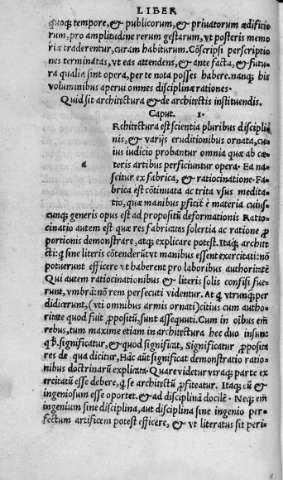 LIBER
quoq; tempore, & publicorum, & priuatorum ædificio
rum, pro amplitudine rerum gestarum, vt posteris memo
riæ traderentur, curam habiturum. Cōscripsi perscriptio
nes terminatas, vt eas attendens, & ante facta, & futu
ra qualia sint opera, per te nota posses habere. nanq; his
voluminibus aperui omnes disciplinæ rationes.
Quid sit architectura & de architectis instituendis.
Caput. 1.
Rchitectura est scientia pluribus discipli
nis, & varijs eruditionibus ornata, cu
ius iudicio probantur omnia quæ ab cæ
a teris artibus perficiuntur opera. Ea na
scitur ex fabrica, & ratiocinatione. Fa
brica est cōtinuata ac trita vsus medita
tio, quæ manibus pficit̄ è materia cuius
cunq; generis opus est ad propositū deformationis. Ratio
cinatio autem est quæ res fabricatas solertia ac ratione p
portionis demonstrare, atq; explicare potest. Itaq; archite
cti: q sine literis cōtenderūt vt manibus essent exercitati: nō
potuerunt efficere vt haberent pro laboribus authoritatē
Qui autem ratiocinationibus & literis solis confisi fue
runt, vmbrā: nō rem persecuti videntur. At q vtrunq; per
didicerunt, (vti omnibus armis ornati) citius cum autho
ritate quod fuit ,ppositū, sunt assequuti. Cum in oībus em̄
rebus, tum maxime etiam in architectura hec duo insunt
qđ. significatur, & quod significat, Significatur ,pposita
res de qua dicitur, Hāc aūt significat demonstratio ratio
nibus doctrinarū explicata. Quare videtur vtraq; parte ex
ercitatū esse debere, q se architectū ,pfiteatur. Itaq; cū &
ingeniosum esse oportet, & ad disciplinā docilē. Neq; em̄
ingenium sine disciplina, aut disciplina sine ingenio per-
fectum artificem potest efficere, & vt literatus sit peri-